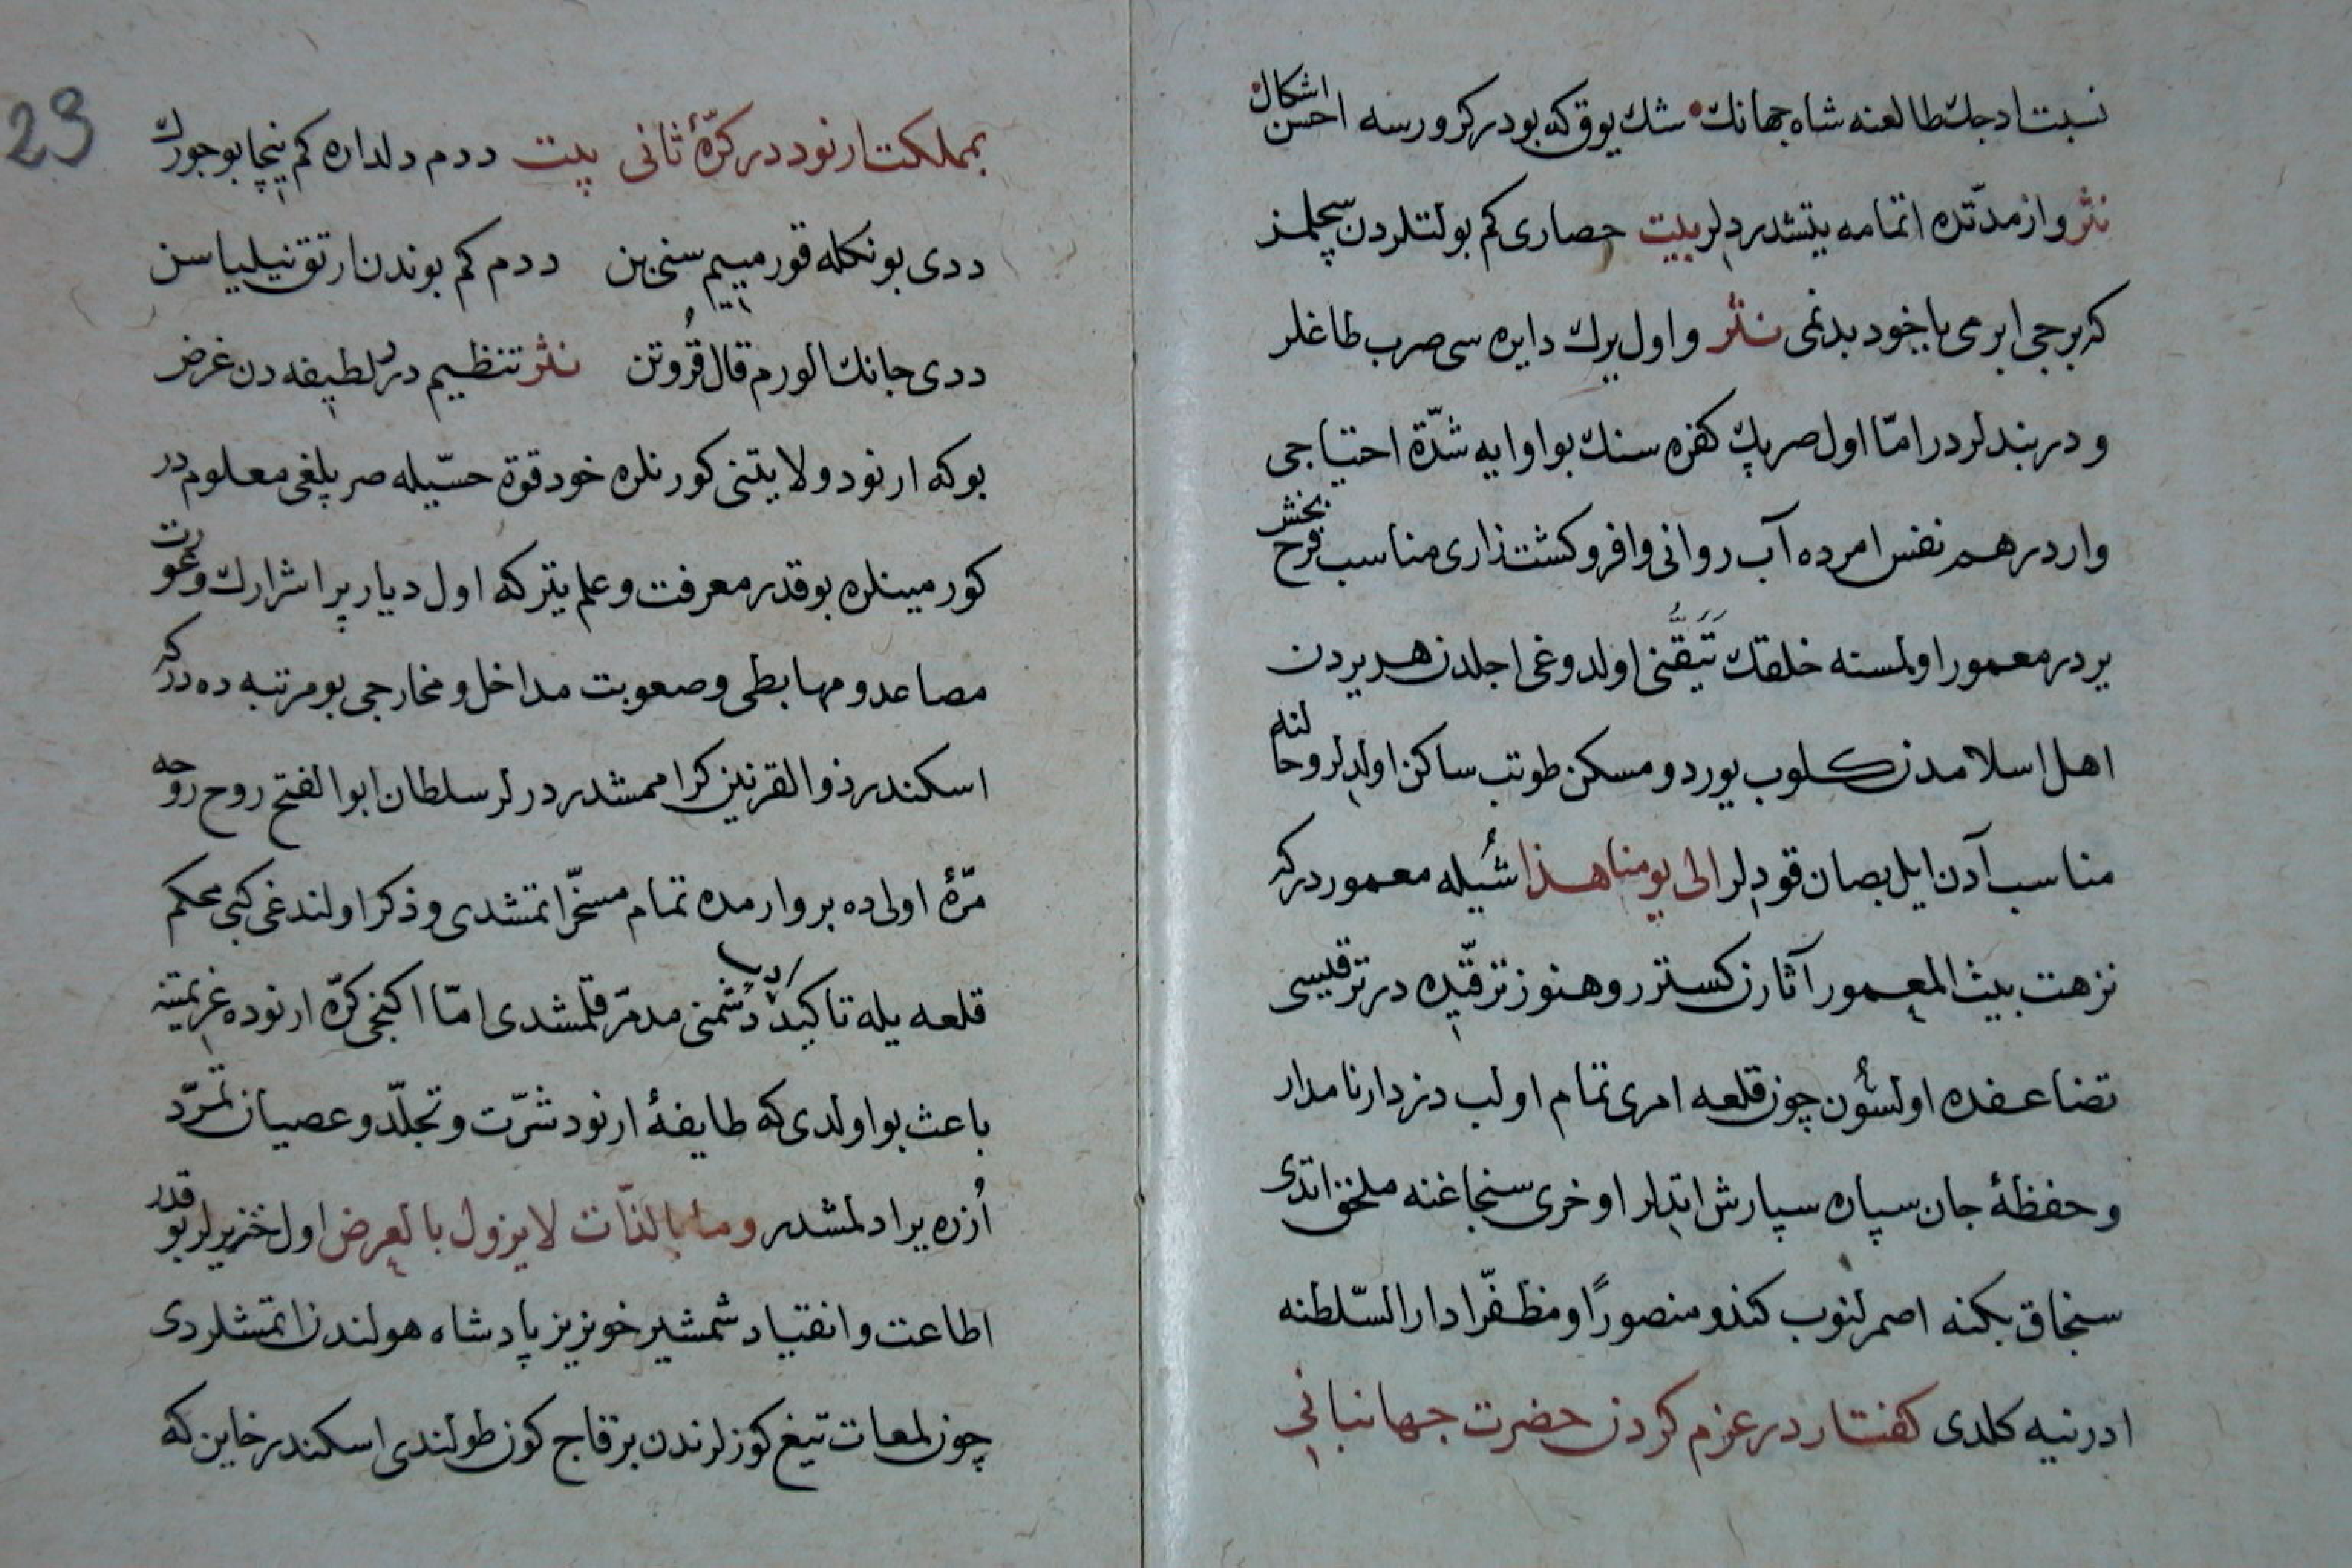 نسبت ادجك طالعنه شاه جهانك شك يوق كه بودر كرورسه احسن اشكال
نثر و از مدّتده اتمامه يتشدردلر بيت حصارى كم بولتلردن سچلمز
كه برجى ابرمى يا خود بدنمى نثر و اول يرك دايره سى صرب طاغلر
و دربندلردر امّا اول صرپك كفره سنك بو اوايه شدّة احتياجى
واردر هم نفس امرده آب روانى وافر و كشت زارى مناسب فرح بخش
يردر معمور اولمسنه خلقك تيقّنى اولدوغى اجلدن هر يردن
اهل اسلامدن كلوب يورد و مسكن طوتب ساكن اولدلر و حالنه
مناسب آدن ايل بصان قودلر الى يومنا هذا شيله معموردر كه
نزهت بيت المعمور آثارن كستررو هنوز ترقّيده در ترقيسى
تضاعفده اولسون چون قلعه امرى تمام اولب دزدار نامدار
و حفظۀ جان سپاره سپارش اتدلر اوخرى سنجاغنه ملحق اتدى
سنجاق بكنه اصمرلنوب كندو منصورًا و مظفّرا دار السّلطنه
ادرنيه كلدى كفتار در عزم كردن حضرت جهانبانى
23
بمملكت ارنود در كرّۀ ثانى بيت ددم دلداره كم نيچا بو جورك
ددى بونكله قورميم سنى بن ددم كم بوندن ارتق نيلياسن
ددى جانك الورم قال قروتن نثر تنظيم در لطيفه دن غرض
بو كه ارنود ولايتنى كورنلره خود قوة حسّيله صرپلغى معلومدر
كورمينلره بو قدر معرفت و علم يتر كه اول ديار پر اشرارك وعورت
مصاعد و مهابطى و صعوبت مداخل و مخارجى بو مرتبه ده در كه
اسكندر ذو القرنين كرا ممشدر درلر سلطان ابو الفتح روح روحه
مرّۀ اولى ده بر وارمده تمام مسخّر اتمشدى و ذكر اولندغى كبى محكم
قلعه يله تاكيد دشمنى مدمّر قلمشدى امّا اكنجى كرّه ارنوده عزيمتنه
باعث بو اولدى كه طايفۀ ارنود شرّت و تجلّد و عصيان تمرّد
اُزره يرادلمشدر وما بالذّات لا يزول بالعرض اول خنزيرلر بو قدر
اطاعت و انقياد شمشير خونريز پادشاه هولندن اتمشلردى
چون لمعات تيغ كوزلرندن بر قاج كون طولندى اسكندر خاين كه